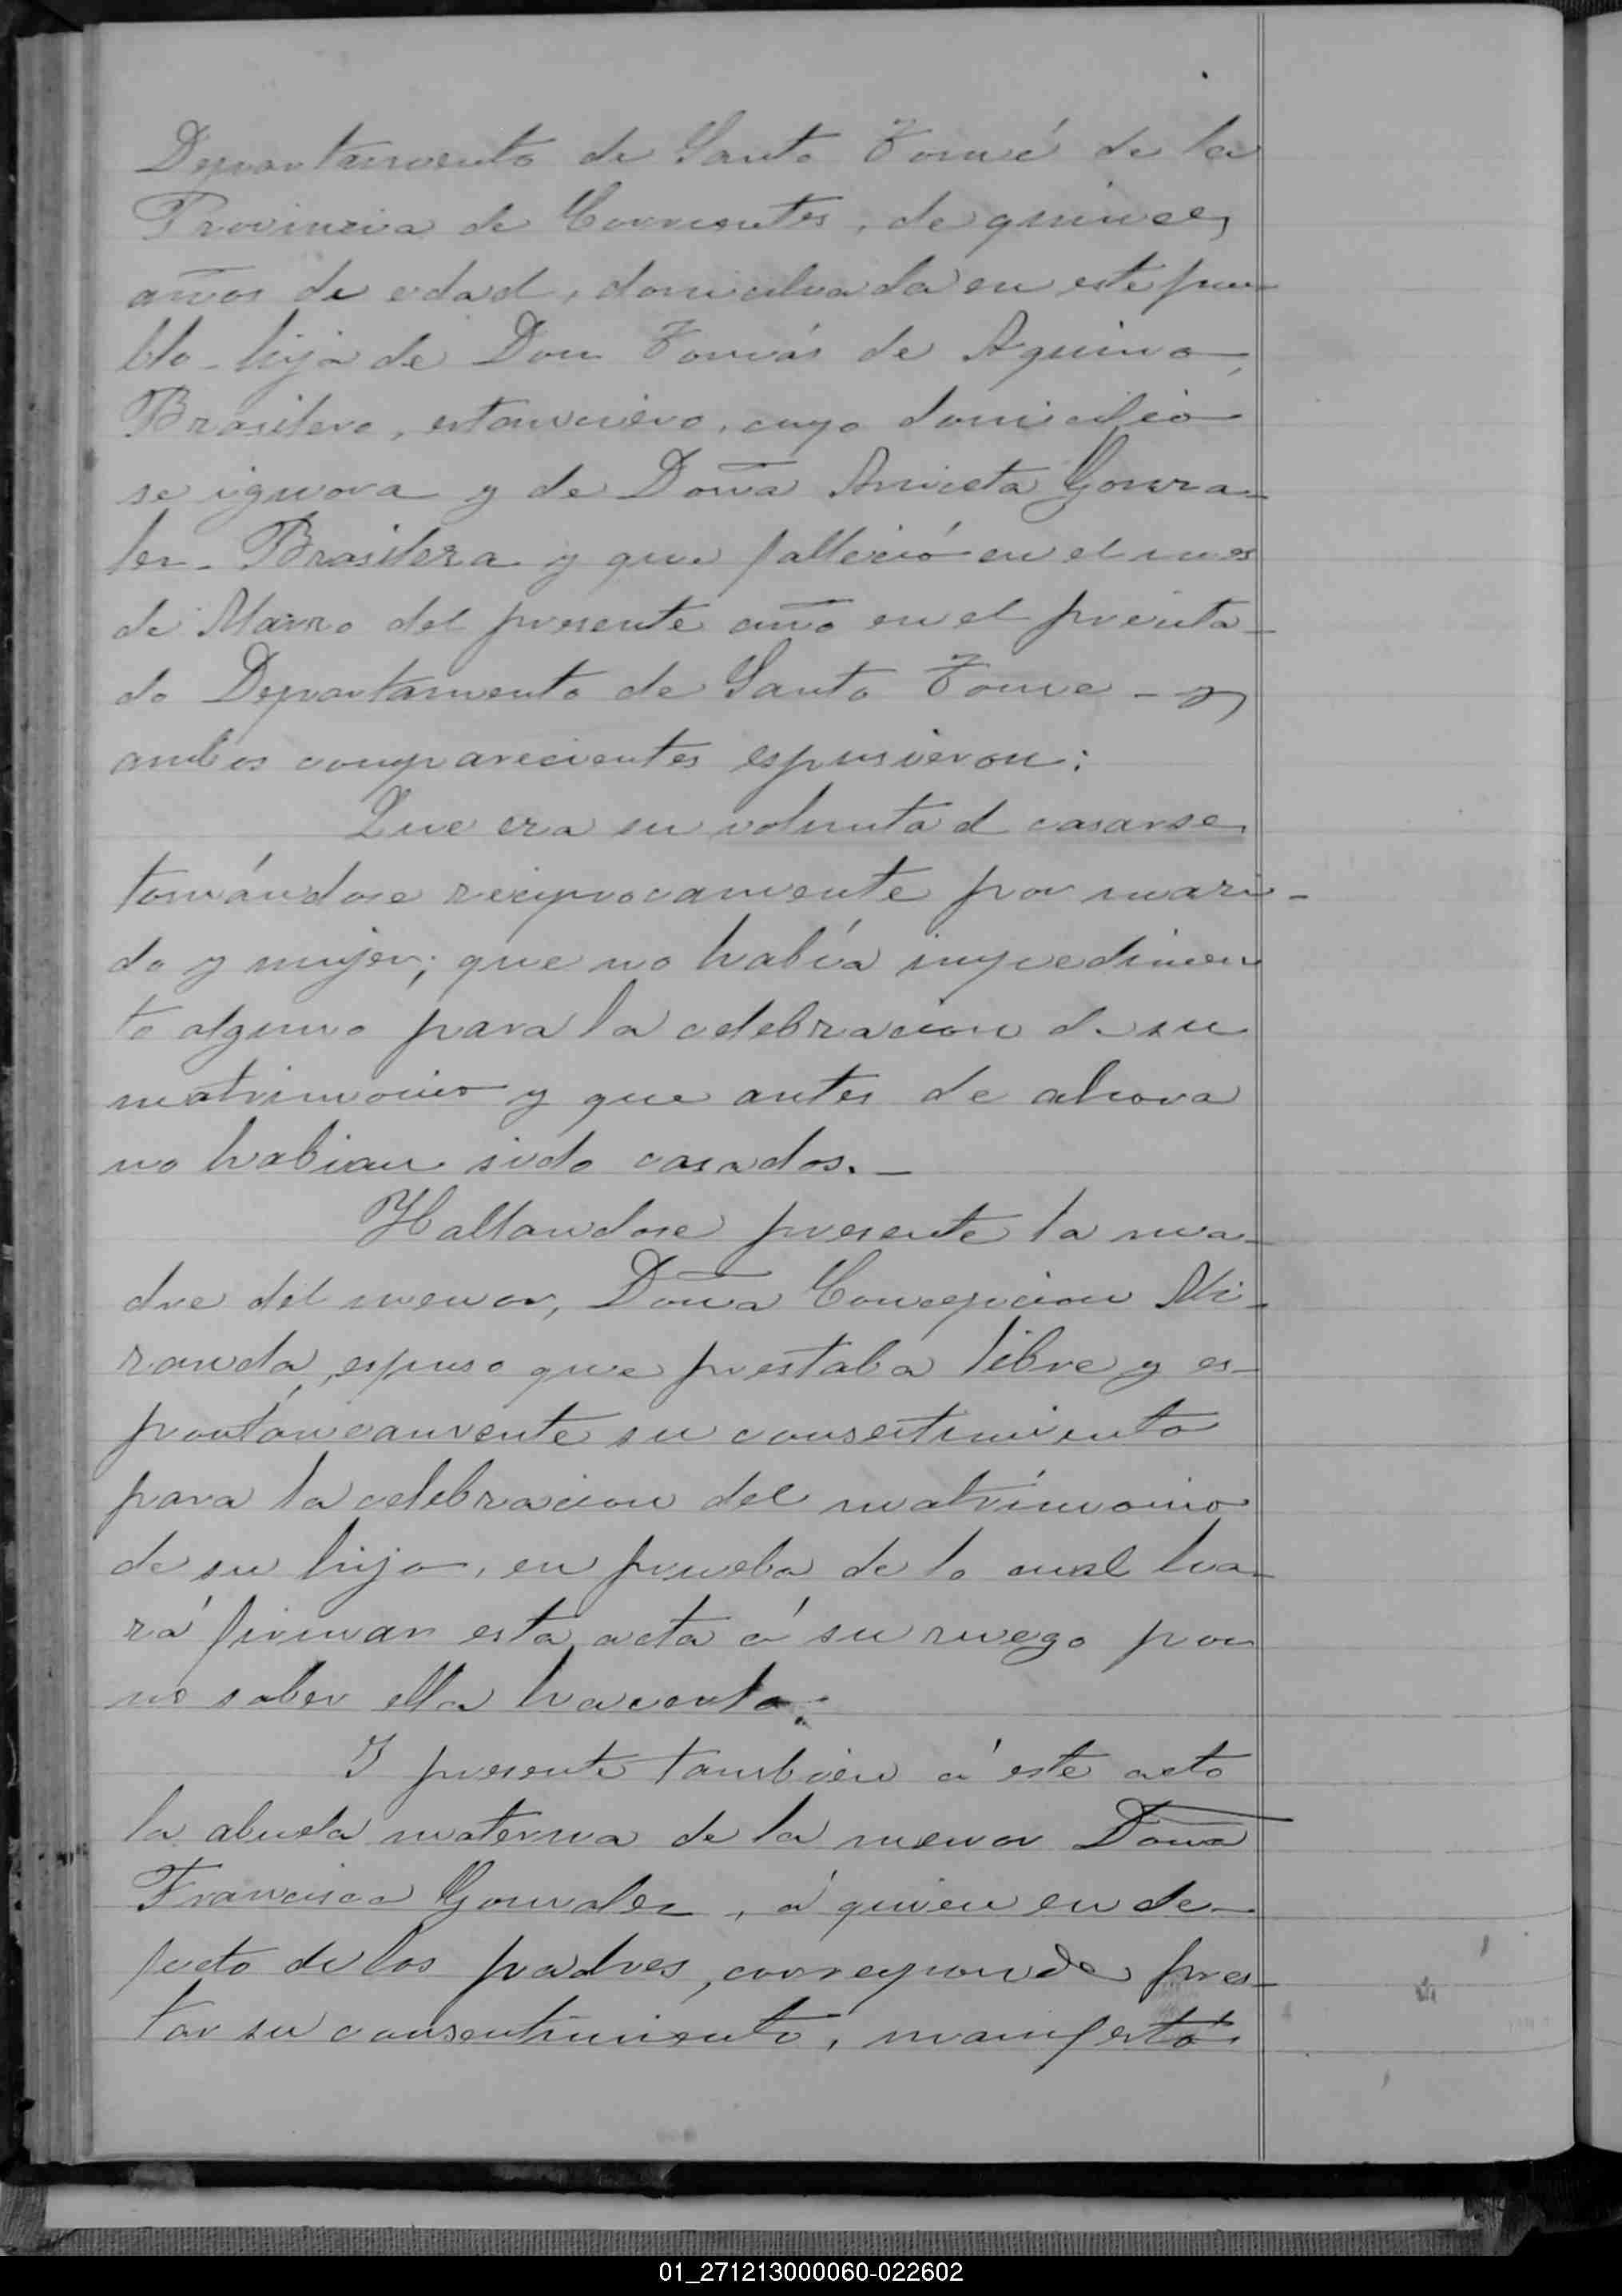 Departamento de Santo Tomé de la
Provincia de Corrientes, de quince
años de edad, domiciliada en este pue-
blo - hija de Don Tomás de Aquino,
Brasilero, estanciero, cuyo domicilio
se ignora y de Doña Aniceta Gonza-
lez - Brasilera y que falleció en el mes
de Marzo del presente año en el precita-
do Departamento de Santo Tome - y
ambos comparecientes espusieron:
Que era su voluntad casarse
tomándose reciprocamente por mari-
do y mujer; que no había impedimen
to alguno para la celebracion de su
matrimonio y que antes de ahora
no habian sido casados. -
Hallandose presente la ma-
dre del menor, Doña Concepcion Mi-
randa, espuso que prestaba libre y es-
pontáneamente su consentimiento
para la celebracion del matrimonio
de su hijo, en prueba de lo cual ha-
rá firmar esta acta á su ruego por
no saber ella hacerlo.
I presente tambien á este acto
la abuela materna de la menor Doña
Francisca Gonzalez, á quien en de-
fecto de los padres, corresponde pres-
tar su consentimiento, manifestó
01_271213000060-022602